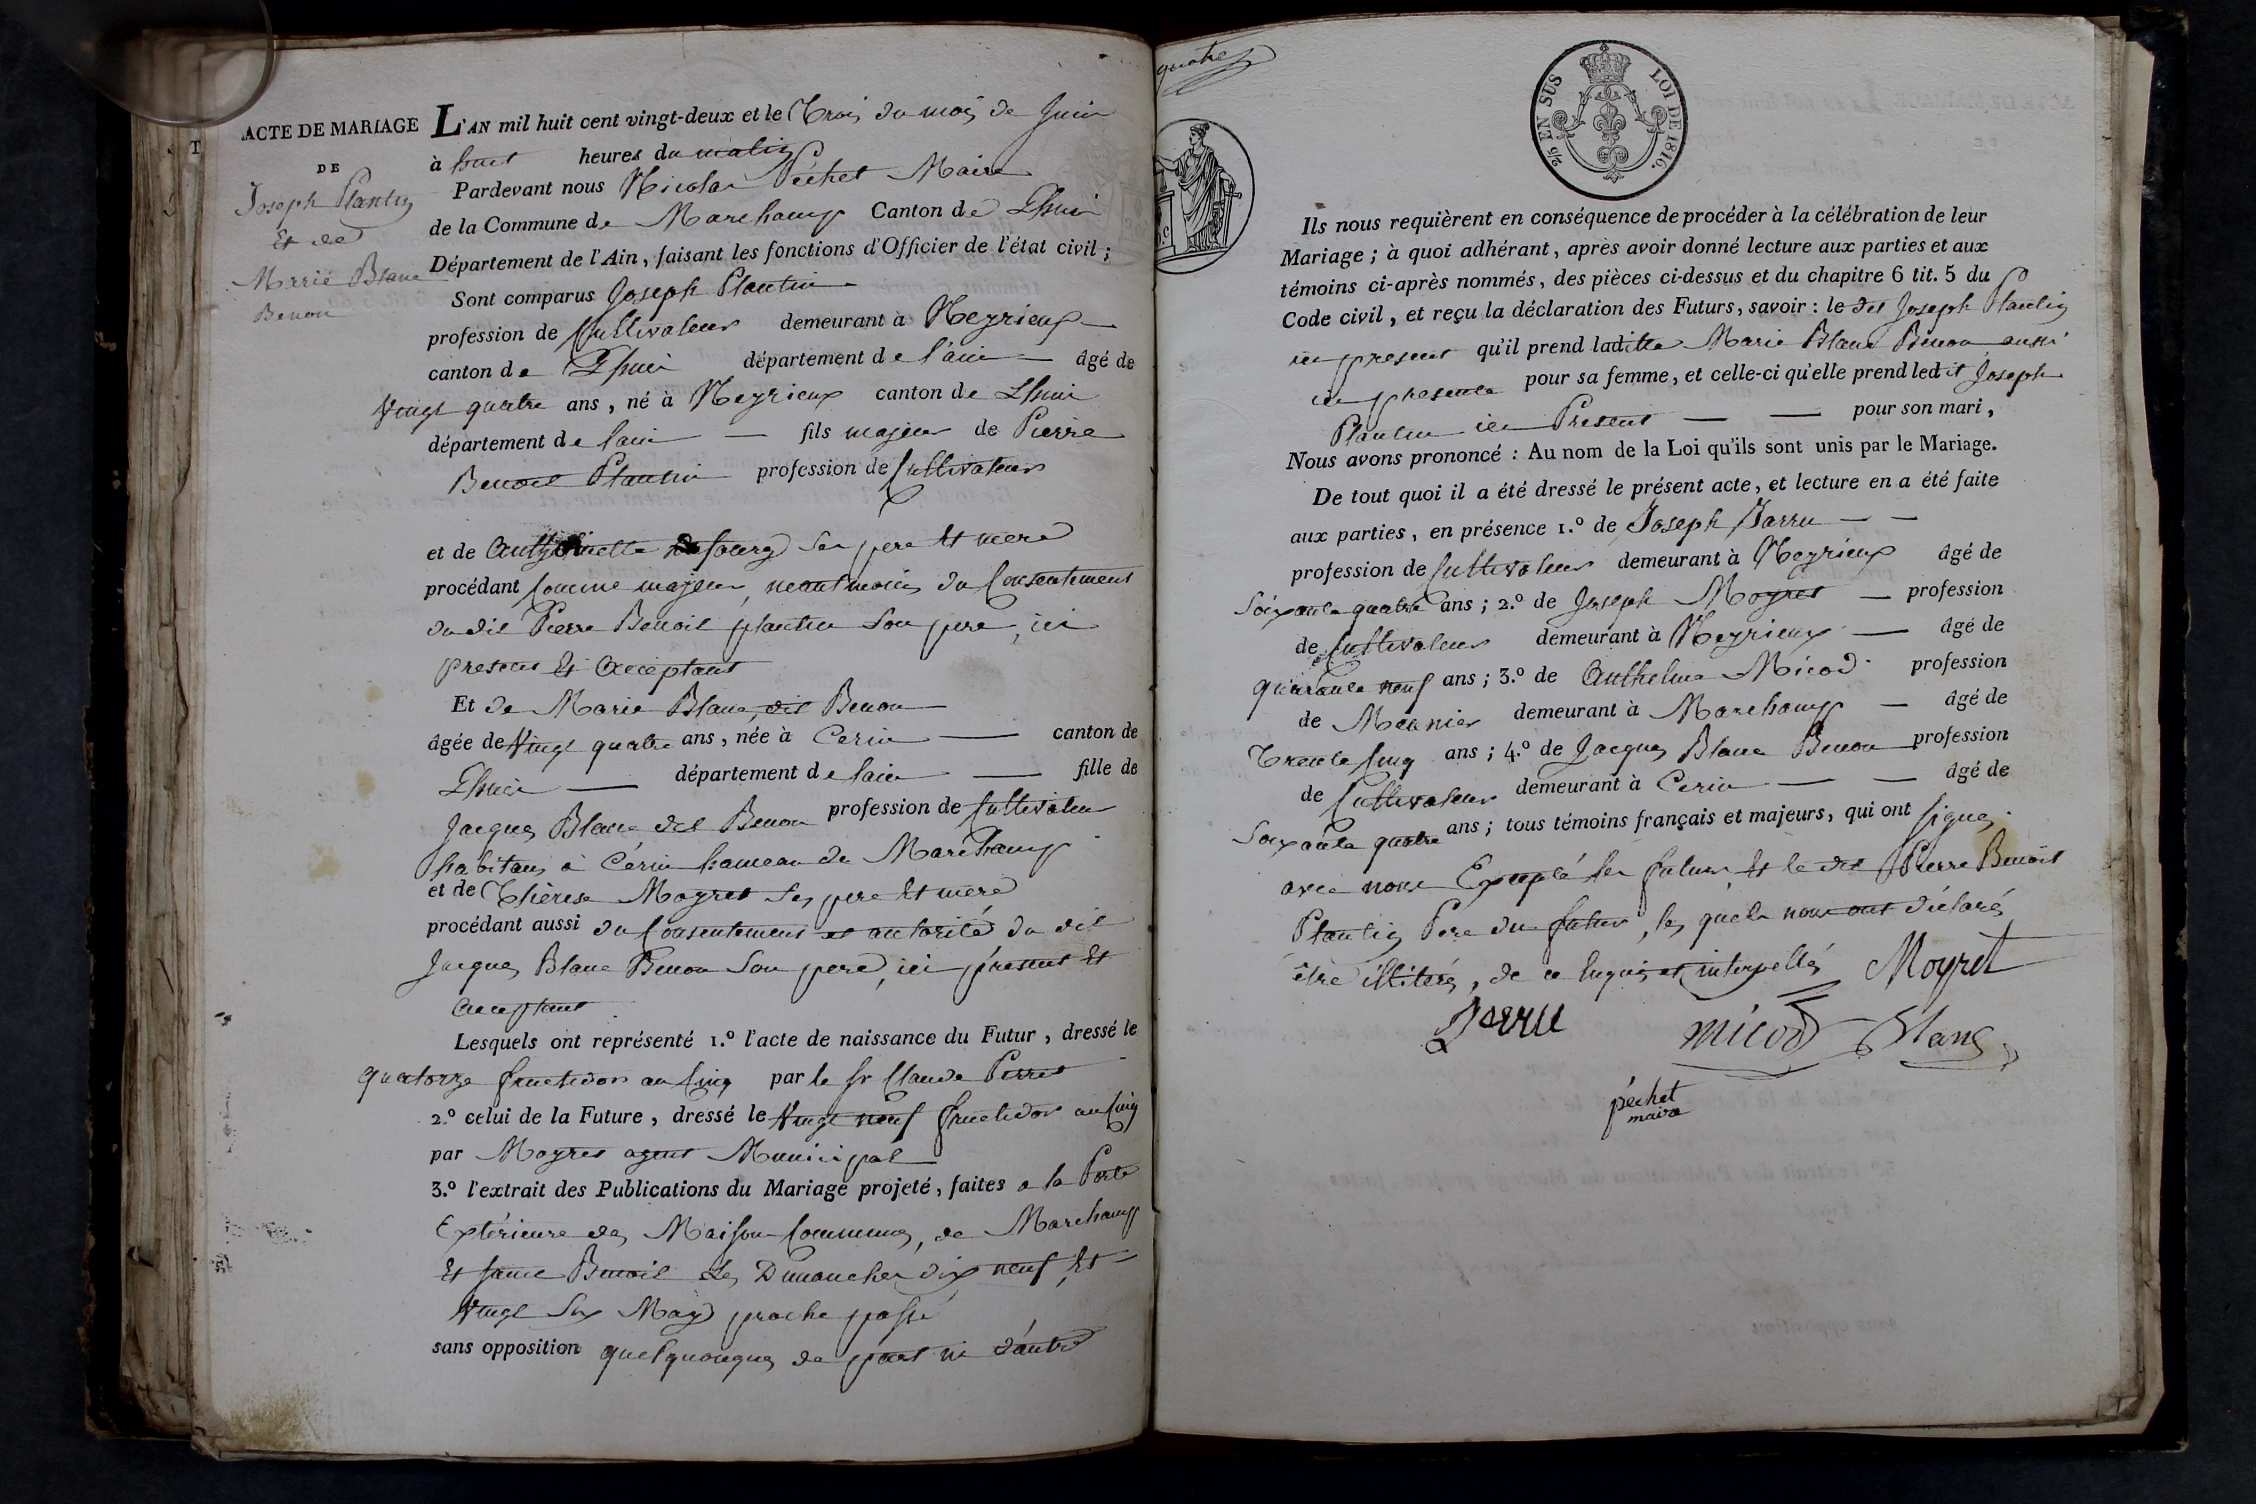 ACTE DE MARIAGE
DE
Joseph Plantin
Et de
Marrie Blanc
Benon
L'AN mil huit cent vingt-deux et le Trois du mois de Juin
à huit heures du matin
Pardevant nous Nicolas Péchet Maire
de la Commune de Marchamp Canton de Lhuis
Département de l'Ain, faisant les fonctions d'Officier de l'état civil;
Sont comparus Joseph Plantin
profession de Cultivateur demeurant à Meyrieux
canton de Lhuis département de l'ain âgé de
Vingt quatre ans, né à Meyrieux canton de Lhuis
département de lain fils majeur de Pierre
Benoit Plantin profession de Cultivateur
et de Anthelmette ses pere Et mere
procédant Comme majeur, neantmoins du Consentement
du dit Pierre Benoit plantin Son pere, ici
present Et acceptant
Et de Marie Blanc, dit Benon
âgée de Vingt quatre ans, née à Cerin canton de
Lhuis département de lain fille de
Jacques Blanc dit Benon profession de Cultivateur
habitans à Cérin hameau de Marchamp
et de Thérèse Moyret Ses pere Et mere
procédant aussi du Consentement et autorité du dit
Jacques Blanc Benon Son pere, ici présent Et
acceptant
Lesquels ont représenté 1.º l'acte de naissance du Futur, dressé le
quatorze fructidor an Cinq par le sr Claude Perret
2.º celui de la Future, dressé le Vingt neuf fructidor an Cinq
par Moyret agent Municipal
3.º l'extrait des Publications du Mariage projeté, faites a la Porte
Extérieure des Maison Communes, de Marchamp
Et saint Benoit Les Dimanches dix neuf, Et
Vingt Six May proche passé
sans opposition quelquonques de part ni d'autre
quatre
2/5 EN SUS
LOI DE 1816.
Ils nous requièrent en conséquence de procéder à la célébration de leur
Mariage; à quoi adhérant, après avoir donné lecture aux parties et aux
témoins ci-après nommés, des pièces ci-dessus et du chapitre 6 tit. 5 du
Code civil, et reçu la déclaration des Futurs, savoir: le dit Joseph Plantin
ici present qu'il prend laditte Marie Blanc Benon aussi
ici presente pour sa femme, et celle-ci qu'elle prend ledit Joseph
Plantin ici Present pour son mari,
Nous avons prononcé: Au nom de la Loi qu'ils sont unis par le Mariage.
De tout quoi il a été dressé le présent acte, et lecture en a été faite
aux parties, en présence 1.º de Joseph Jarru
profession de Cultivateur demeurant à Meyrieux âgé de
Soixante quatre ans; 2.º de Joseph Moyret profession
de Cultivateur demeurant à Meyrieux âgé de
quarante neuf ans; 3.º de Anthelme Micod profession
de Meunier demeurant à Marchamp âgé de
Trente Cinq ans; 4.º de Jacques Blanc Benon profession
de Cultivateur demeurant à Cerin âgé de
Soixante quatre ans; tous témoins français et majeurs, qui ont signés
avec nous Excepté les futurs Et le dit Pierre Benoit
Plantin Pere du futur, les quels nous ont déclarés
être illiterés, de ce Enquis et interpellés Moyret
Jarru
micod Blanc
péchet
maire